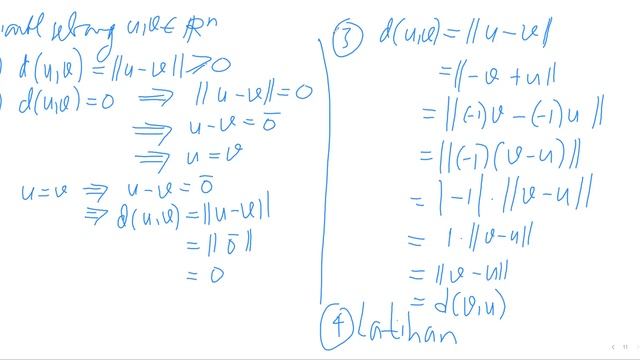 sebarang u,v ∈ ℝⁿ
) d(u,v) = ||u-v|| ≥ 0
) d(u,v) = 0 ⇒ ||u-v|| = 0
⇒ u-v = 0̄
⇒ u = v
u=v ⇒ u-v = 0̄
⇒ d(u,v) = ||u-v||
= ||0̄||
= 0
③ d(u,v) = ||u-v||
= ||-v+u||
= ||(-1)v-(-1)u||
= ||(-1)(v-u)||
= |-1|·||v-u||
= 1·||v-u||
= ||v-u||
= d(v,u)
④ Latihan
11